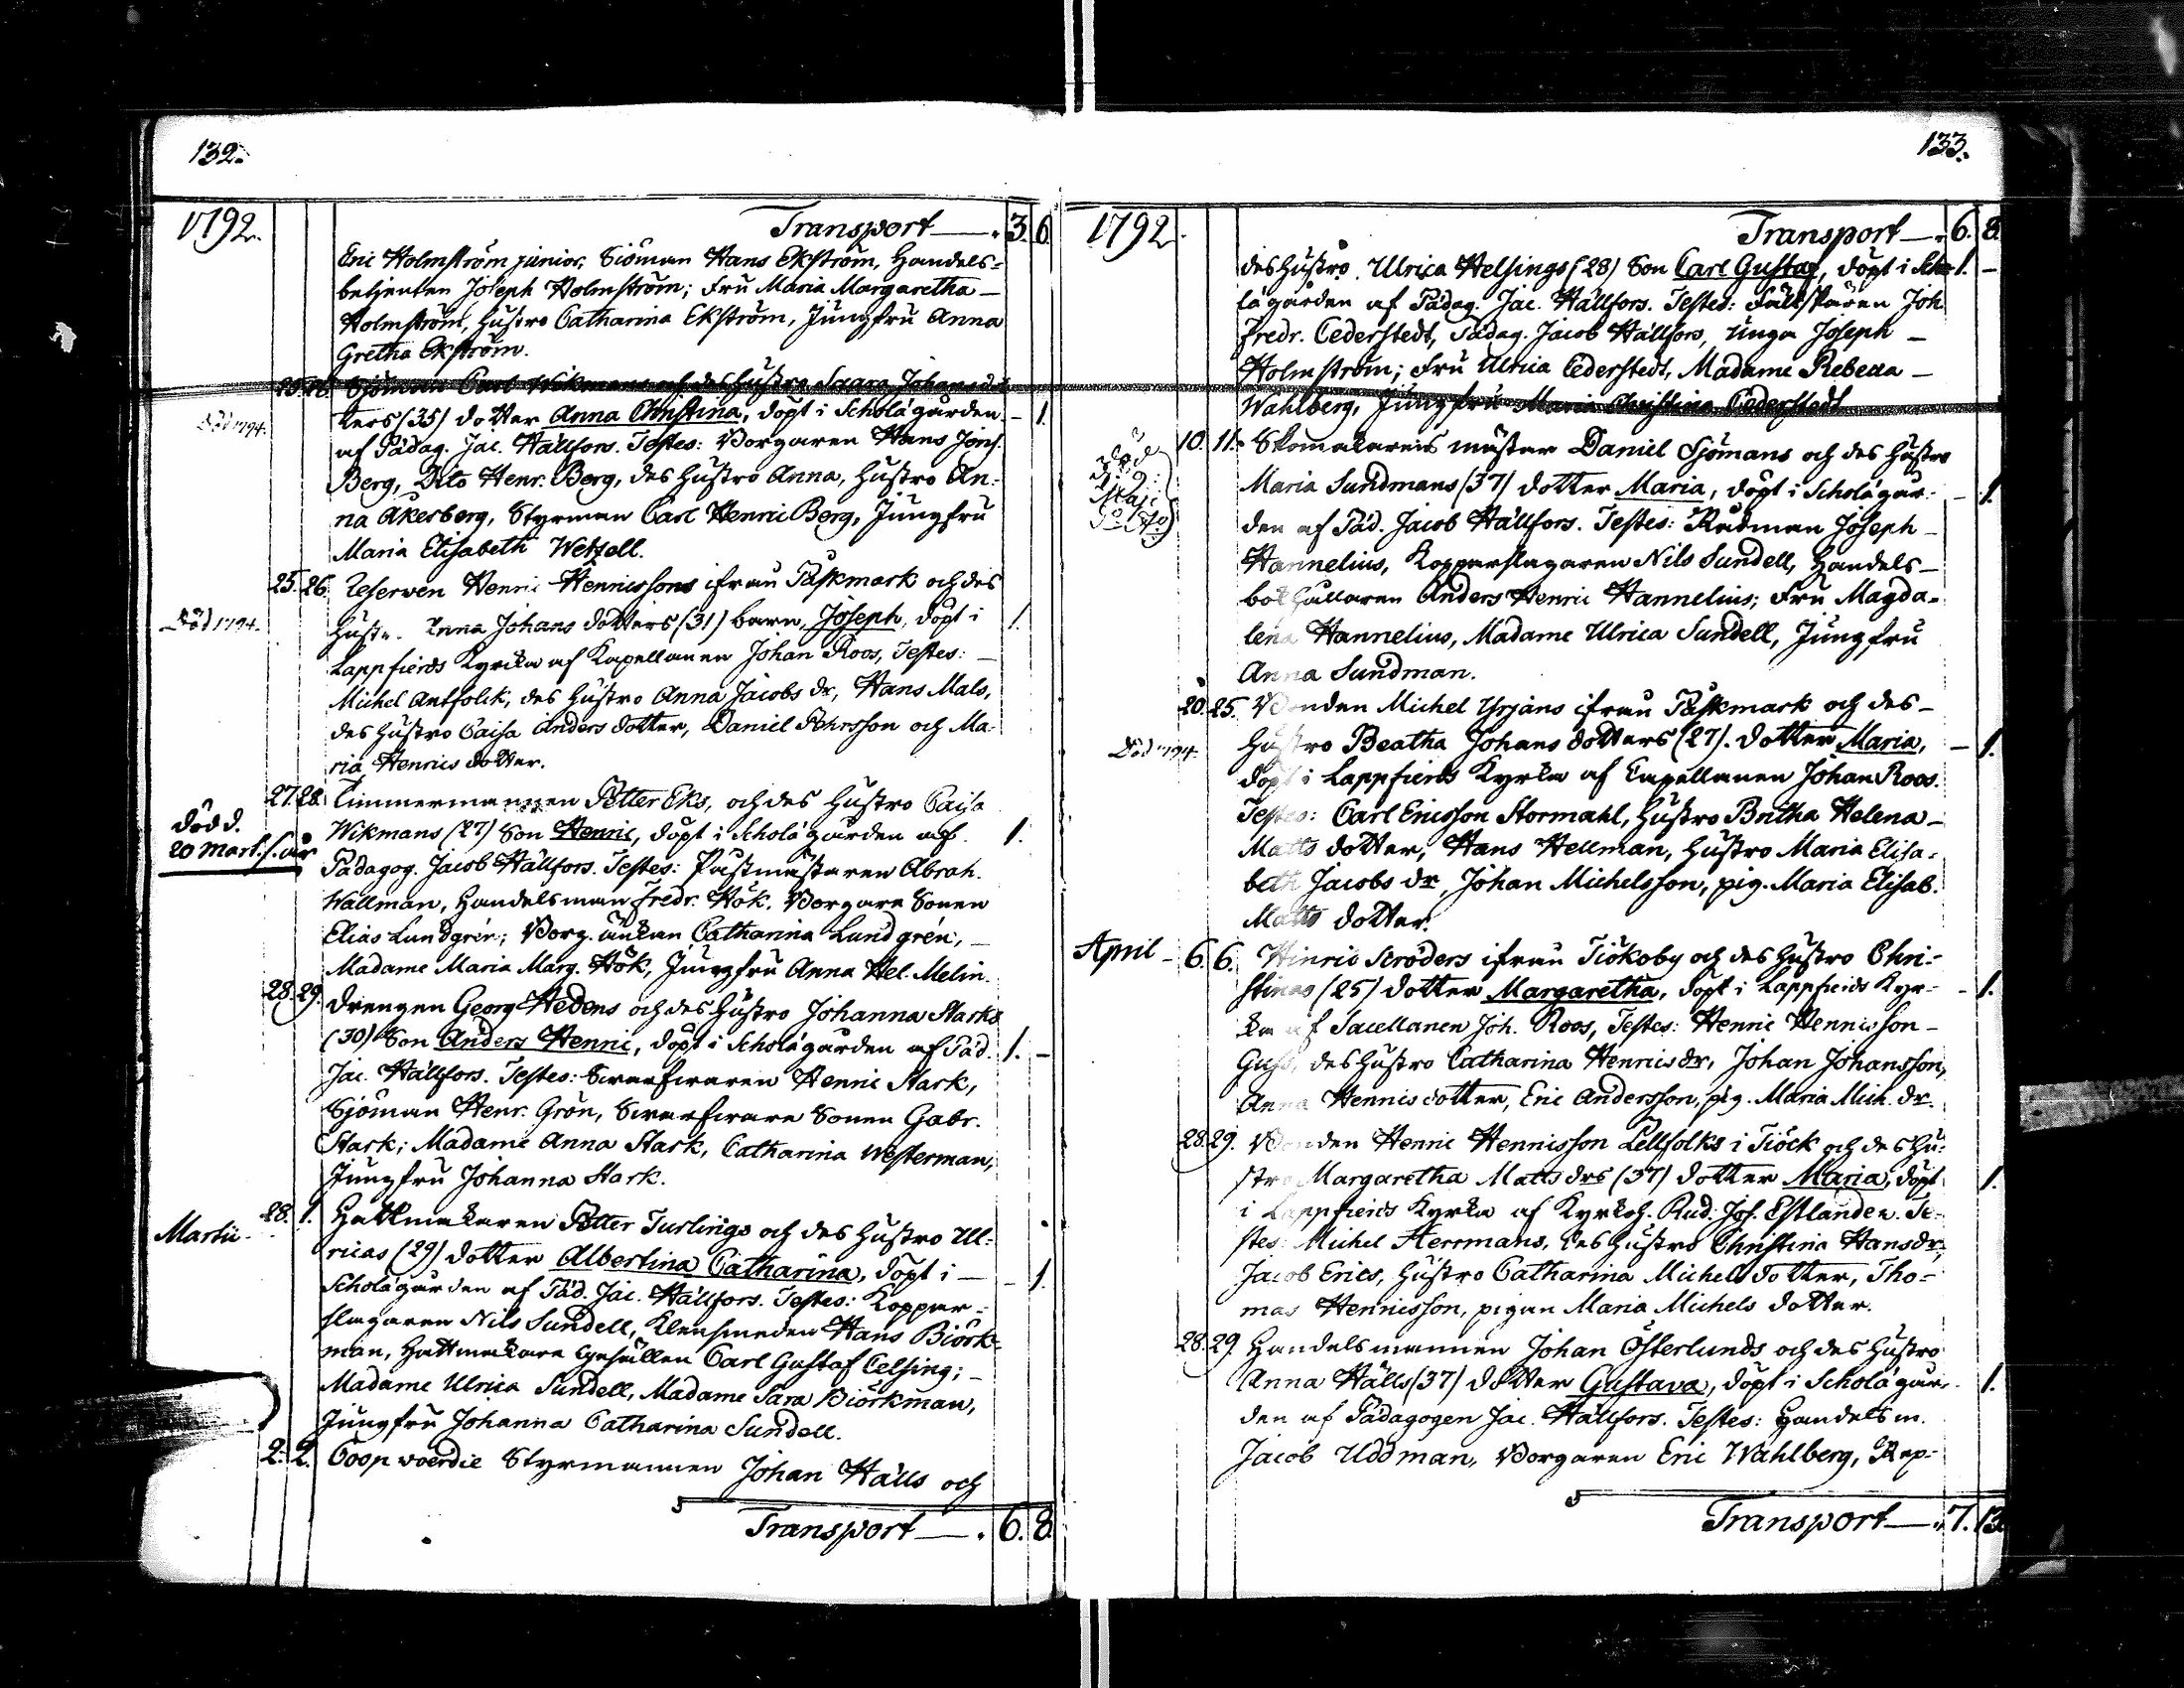 132.
1792.
Transport —. 3. 6
Eric Holmström junior, Siöman Hans Ekström, Handels-
betjenten Joseph Holmström; Fru Maria Margaretha —
Holmström, Hustro Catharina Ekström, Jungfru Anna
Gretha Ekström.
25. 26. Sjöman Carl Wikmans och des Hustro Johansdot
Död 1794. ters (35) dotter Anna Christina, döpt i Scholægården — 1.
af Pädag. Jac. Hällfors. Testes: Borgaren Hans Jöns.
Berg, Dito Henr. Berg, des Hustro Anna, Hustro An-
na Åkerberg, Styrman Carl Henric Berg, Jungfru
Maria Elisabeth Wetzell.
25. 26. Reserven Henric Henricssons ifrån Påskmark och des
Död 1794. Hustr. Anna Johans dotters (31) barn, Joseph, döpt i 1.
Lappfierds Kyrka af Kapellanen Johan Roos, Testes: —
Michel Antfolck, des Hustro Anna Jacobs dr, Hans Mals,
des Hustro Caisa Anders dotter, Daniel Pehrsson och Ma-
ria Henrics dotter.
27. 28. Timmermannen Petter Eks, och des Hustro Caisa
död d. Wikmans (27) Son Henric, döpt i Scholægården af 1.
20 Mart. s. år Pädagog. Jacob Hällfors. Testes: Postmästaren Abrah.
Wallman, Handelsman Fredr. Hök. Borgare Sonen
Elias Lundgrén; Borg. änkan Catharina Lundgrén, —
Madame Maria Marg. Hök, Jungfru Anna Hel. Melin.
28. 29. Drengen Georg Hedens och des Hustro Johanna Starks
(30) Son Anders Henric, döpt i Scholægården af Päd. 1. —
Jac. Hällfors. Testes: Swarfwaren Henric Stark,
Sjöman Henr. Grön, Swarfware Sonen Gabr.
Stark; Madame Anna Stark, Catharina Westerman,
Jungfru Johanna Stark.
Martii. 28. 1. Hattmakaren Petter Turlings och des Hustro Ul-
ricas (29) dotter Albertina Catharina, döpt i —
Scholægården af Päd. Jac. Hällfors. Testes: Koppar- — 1.
slagaren Nils Sundell, Klensmeden Hans Biörk-
man, Hattmakare Gesällen Carl Gustaf Celsing; —
Madame Ulrica Sundell, Madame Sara Biörkman,
Jungfru Johanna Catharina Sundell.
2. 2. Coopvoerdie Styrmannen Johan Hälls och
Transport —. 6. 8.
133.
1792.
Transport —. 6. 8.
des Hustro Ulrica Helsings (28) Son Carl Gustaf, döpt i Scho- 1. —
lægården af Pädag. Jac. Hällfors. Testes: Joh.
Fredr. Cederstedt, Pädag. Jacob Hällfors, Unga Joseph —
Holmström; Fru Ulrica Cederstedt, Madame Rebecca —
Wahlberg, Jungfru Maria Christina Cederstedt
10. 11. Skomakarens mästar Daniel Sjömans och des Hustro
död d. 9. Maji Maria Sundmans (37) dotter Maria, döpt i Scholægår- — 1.
den af Päd. Jacob Hällfors. Testes: Rådman Joseph —
Hannelius, Kopparslagaren Nils Sundell, Handels-
bokhållaren Anders Henric Hannelius; Fru Magda-
lena Hannelius, Madame Ulrica Sundell, Jungfru
Anna Sundman.
20. 25. Bonden Michel Yrjäns ifrån Påskmark och des —
Död 1794. Hustro Beatha Johans dotters (27). dotter Maria, — 1.
döpt i Lappfierds Kyrka af Capellanen Johan Roos.
Testes: Carl Ericsson Stormahl, Hustro Britha Helena —
Matts dotter, Hans Hellman, Hustro Maria Elisa-
beth Jacobs dr, Johan Michelsson, pig. Maria Elisab.
Matts dotter.
April — 6. 6. Hinric Ströders ifrån Tiökoby och des Hustro Chri-
stinas (25) dotter Margaretha, döpt i Lappfierds Kyr- — 1.
ka af Sacellanen Joh. Roos, Testes: Henric Henricsson —
Guss, des Hustro Catharina Henrics dr, Johan Johansson,
Anna Henrics dotter, Eric Andersson, pig. Maria Mich. dr.
28. 29. Bonden Henric Henricsson Lellfolks i Tiöck och des Hu-
stro Margaretha Matts drs (37) dotter Maria, döpt 1.
i Lappfierds Kyrka af Kyrkoh. Rud. Jos. Estlander. Te-
stes: Michel Herrmans, des Hustro Christina Hans dr,
Jacob Erics, Hustro Catharina Michels dotter, Tho-
mas Henricsson, pigan Maria Michels dotter.
28. 29. Handelsmannen Johan Österlunds och des Hustro
Anna Hälls (37) dotter Gustava, döpt i Scholægår- 1.
den af Pädagogen Jac. Hällfors. Testes: Handelsm.
Jacob Uddman, Borgaren Eric Wahlberg, Rep-
Transport —. 7. 13.